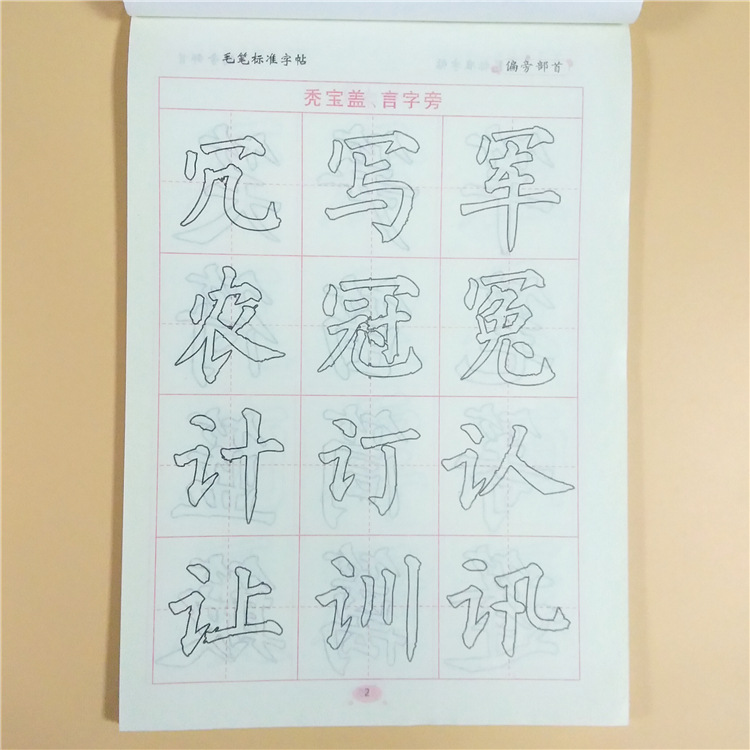 毛笔标准字帖 偏旁部首
秃宝盖、言字旁
冗写军
农冠冤
计订认
让训讯
2